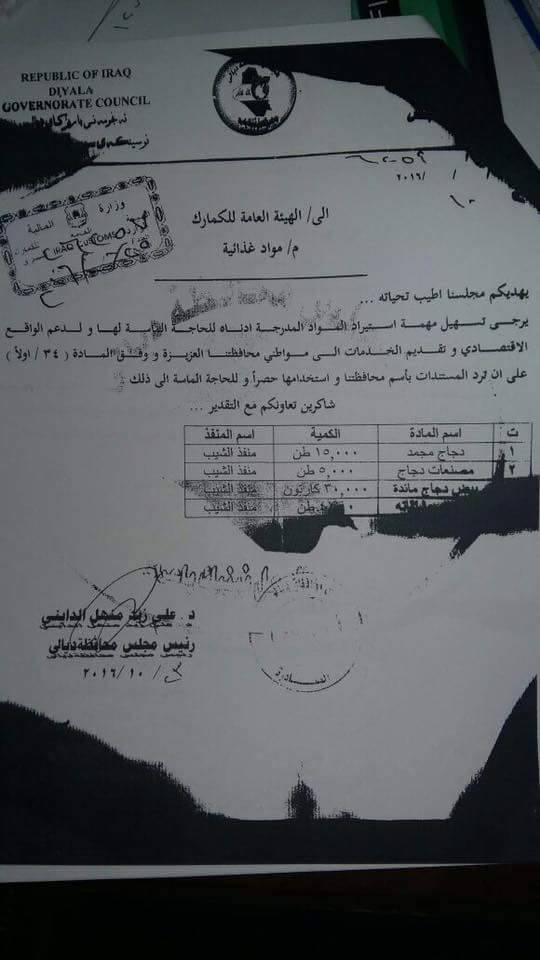 REPUBLIC OF IRAQ
DIYALA
GOVERNORATE COUNCIL
٢٠١٦/ /
وزارة
المالية
IRAQ CUSTOMS
الى/ الهيئة العامة للكمارك
م/ مواد غذائية
يهديكم مجلسنا اطيب تحياته ...
يرجى تسهيل مهمة استيراد المواد المدرجة ادناه للحاجة الماسة لها و لدعم الواقع
الاقتصادي و تقديم الخدمات الى مواطني محافظتنا العزيزة و وفق المادة ( ٣٤ / اولاً )
على ان ترد المستندات بأسم محافظتنا و استخدامها حصراً و للحاجة الماسة الى ذلك
شاكرين تعاونكم مع التقدير ...
ت اسم المادة الكمية اسم المنفذ
١ دجاج مجمد ١٥,٠٠٠ طن منفذ الشيب
٢ مصنعات دجاج ٥,٠٠٠ طن منفذ الشيب
بيض دجاج مائدة ٣٠,٠٠٠ كارتون منفذ الشيب
طن منفذ الشيب
د. علي زيد منهل الدايني
رئيس مجلس محافظة ديالى
٣/ ١٠/ ٢٠١٦
الصادرة